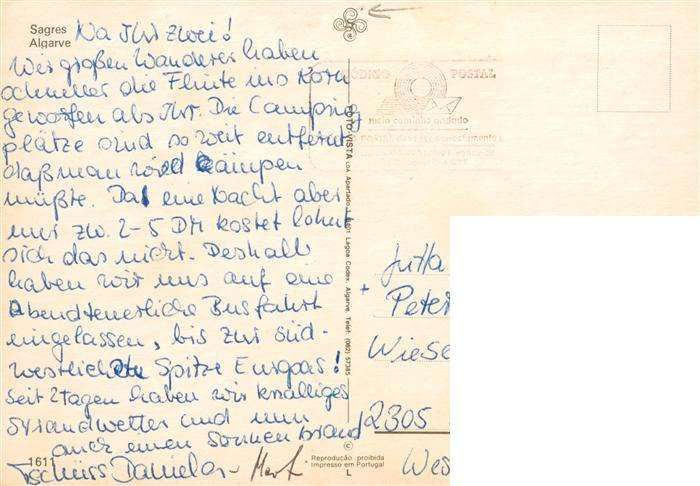 Sagres
Algarve
Na Ihr zwei!
Wir großen Wanderer haben
schneller die Flinte ins Korn
geworfen als Ihr. Die Camping
plätze sind so weit entfernt
daß man wild campen
müßte. Da eine Nacht aber
nur zw. 2-5 DM kostet lohnt
sich das nicht. Deshalb
haben wir uns auf eine
Abendteuerliche Busfahrt
eingelassen, bis zur süd-
westlichsten Spitze Europas!
Seit 2 Tagen haben wir knalliges
Strandwetter und nun
auch einen Sonnenbrand
Tschüss Daniela - Martin
1611
FOTO-VISTA LDA Apartado Lagoa Codex, Algarve, Telef: (082) 57365
© Reprodução proibida
Impresso em Portugal
L
CÓDIGO POSTAL
meio caminho andado
Jutta
+ Peter
Wiese
2305
Wes